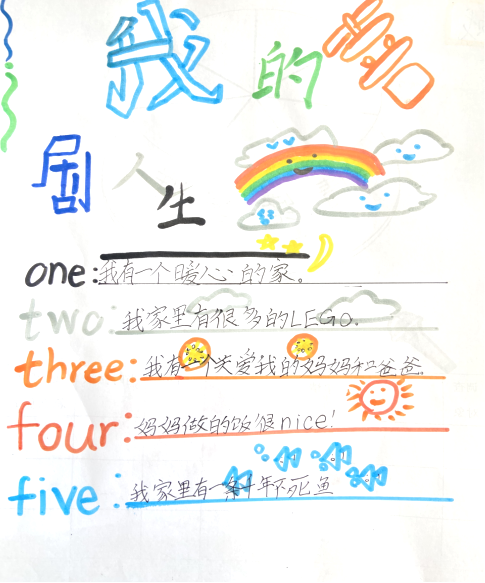 我的喜
剧人生
one:我有一个暖心的家。
two:我家里有很多的LEGO.
three:我有一个关爱我的妈妈和爸爸.
four:妈妈做的饭很nice!
five:我家里有一条十年不死鱼